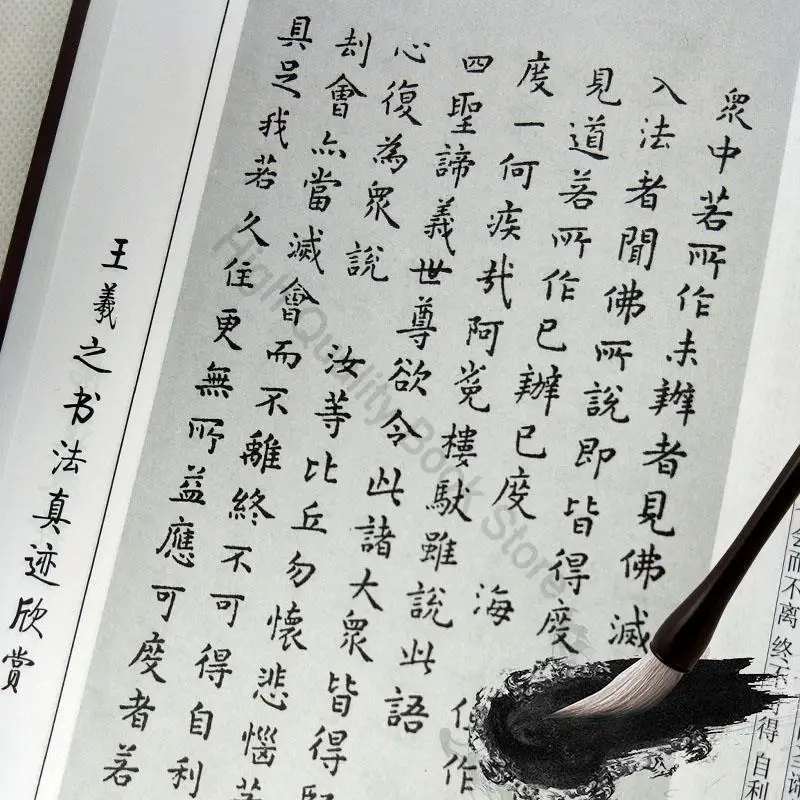 衆中若所作未辦者見佛滅
入法者聞佛所說即皆得度
見道若所作已辦已度 海
度一何疾哉阿㝹樓馱雖說此語
四聖諦義世尊欲令此諸大衆皆得
心復為衆說 汝等比丘勿懷悲惱若
劫會亦當滅會而不離終不可得自利
具足我若久住更無所益應可度者若
王羲之书法真迹欣赏
会而不离 终不 得 自利
High Quality Book Store